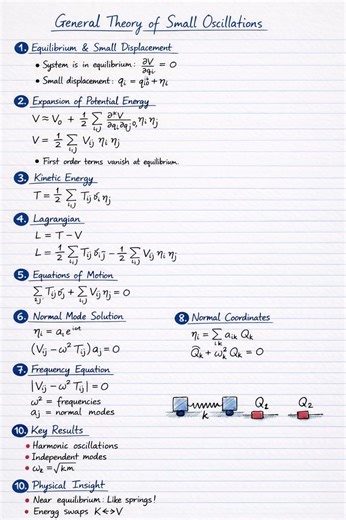 General Theory of Small Oscillations
1. Equilibrium & Small Displacement
• System is in equilibrium: ∂V/∂qᵢ = 0
• Small displacement: qᵢ = qᵢ⁰ + ηᵢ
2. Expansion of Potential Energy
V ≈ V₀ + 1/2 ∑ᵢ,ⱼ ∂²V/∂qᵢ∂qⱼ₀, ηᵢ ηⱼ
V = 1/2 ∑ᵢ,ⱼ Vᵢⱼ ηᵢ ηⱼ
• First order terms vanish at equilibrium.
3. Kinetic Energy
T = 1/2 ∑ᵢ,ⱼ Tᵢⱼ σ̇ᵢ ηⱼ
4. Lagrangian
L = T − V
L = 1/2 ∑ᵢ,ⱼ Tᵢⱼ σᵢ j̄ − 1/2 ∑ᵢ,ⱼ Vᵢⱼ ηᵢ ηⱼ
5. Equations of Motion
∑ Tᵢⱼ σⱼ + ∑ᵢ,ⱼ Vᵢⱼ ηⱼ = 0
6. Normal Mode Solution
ηᵢ = aᵢ e^iωt
(Vᵢⱼ − ω² Tᵢⱼ) aⱼ = 0
8. Normal Coordinates
ηᵢ = ∑ aᵢₖ Qₖ
Q̈ₖ + ωₖ² Qₖ = 0
7. Frequency Equation
|Vᵢⱼ − ω² Tᵢⱼ| = 0
ω² = frequencies
aⱼ = normal modes
k
Q₁
Q₂
10. Key Results
• Harmonic oscillations
• Independent modes
• ωₖ = √km
10. Physical Insight
• Near equilibrium: Like springs!
• Energg swaps K↔V